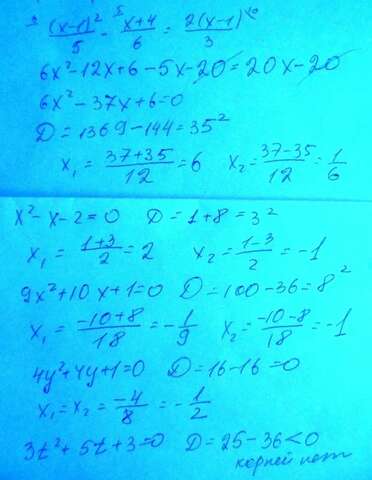 6 (x-1)²/5 - 5 x+4/6 = 2(x-1) 10/3
6x²-12x+6-5x-20=20x-20
6x²-37x+6=0
D=1369-144=35²
x₁=37+35/12=6 x₂=37-35/12=1/6
x²-x-2=0 D=1+8=3²
x₁=1+3/2=2 x₂=1-3/2=-1
9x²+10x+1=0 D=100-36=8²
x₁=-10+8/18=-1/9 x₂=-10-8/18=-1
4y²+4y+1=0 D=16-16=0
x₁=x₂=-4/8=-1/2
3t²+5t+3=0 D=25-36<0
корней нет